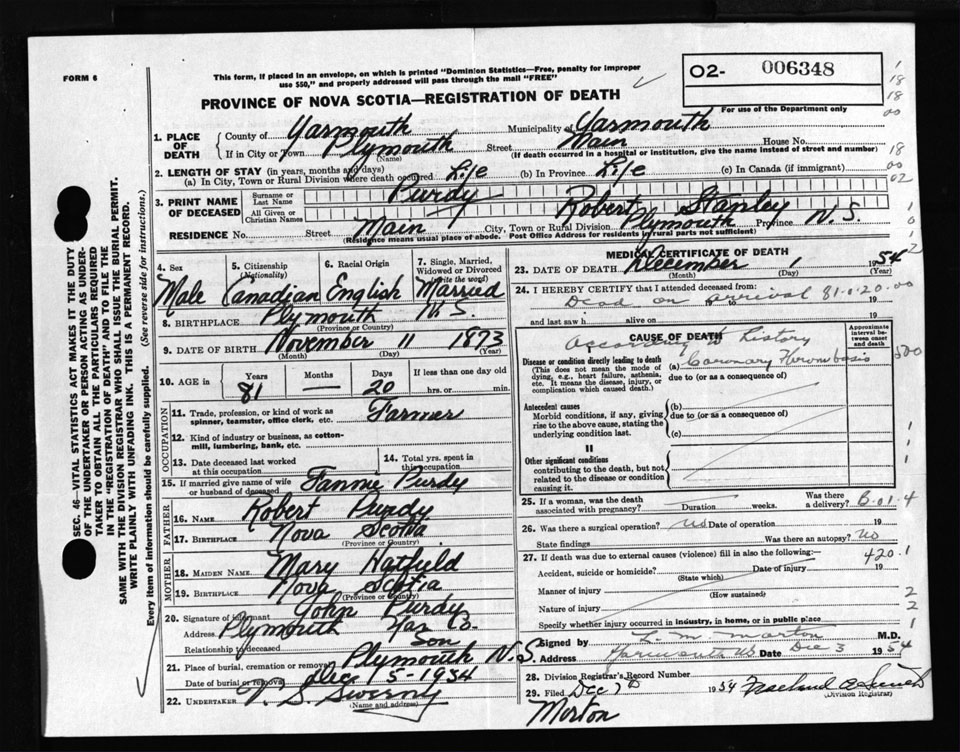 FORM 6
This form, if placed in an envelope, on which is printed "Dominion Statistics—Free, penalty for improper
use $50," and properly addressed will pass through the mail "FREE"
O2- 006348
For use of the Department only
PROVINCE OF NOVA SCOTIA—REGISTRATION OF DEATH
1. PLACE OF DEATH
County of Yarmouth Municipality of Yarmouth
If in City or Town Plymouth (Name) Street Main House No.
(If death occurred in a hospital or institution, give the name instead of street and number)
2. LENGTH OF STAY (in years, months and days)
(a) In City, Town or Rural Division where death occurred Life (b) In Province Life (c) In Canada (if immigrant)
3. PRINT NAME OF DECEASED
Surname or Last Name Purdy
All Given or Christian Names Robert Stanley
RESIDENCE No. Street Main City, Town or Rural Division Plymouth Province N.S.
(Residence means usual place of abode. Post Office Address for residents of rural parts not sufficient)
4. Sex Male
5. Citizenship (Nationality) Canadian
6. Racial Origin English
7. Single, Married, Widowed or Divorced (write the word) Married
8. BIRTHPLACE Plymouth N.S.
(Province or Country)
9. DATE OF BIRTH November 11 1873
(Month) (Day) (Year)
10. AGE in Years 81 Months — Days 20 If less than one day old hrs. or min.
OCCUPATION
11. Trade, profession, or kind of work as spinner, teamster, office clerk, etc. Farmer
12. Kind of industry or business, as cotton-mill, lumbering, bank, etc.
13. Date deceased last worked at this occupation
14. Total yrs. spent in this occupation
15. If married give name of wife or husband of deceased Fannie Purdy
FATHER
16. NAME Robert Purdy
17. BIRTHPLACE Nova Scotia
(Province or Country)
MOTHER
18. MAIDEN NAME Mary Hatfield
19. BIRTHPLACE Nova Scotia
(Province or Country)
20. Signature of informant John Purdy
Address Plymouth Yar Co.
Relationship to deceased Son
21. Place of burial, cremation or removal Plymouth N.S.
Date of burial or removal Dec 5-1954
22. UNDERTAKER V. S. Sweeny
(Name and address)
MEDICAL CERTIFICATE OF DEATH
23. DATE OF DEATH December 1 1954
(Month) (Day) (Year)
24. I HEREBY CERTIFY that I attended deceased from:
Dead on arrival 81-0-20-00 19
and last saw h alive on 19
CAUSE OF DEATH
Approximate interval between onset and death
History
Disease or condition directly leading to death
(This does not mean the mode of dying, e.g., heart failure, asthenia, etc. It means the disease, injury, or complication which caused death.)
(a) Coronary Thrombosis
due to (or as a consequence of)
Antecedent causes
Morbid conditions, if any, giving rise to the above cause, stating the underlying condition last.
(b)
due to (or as a consequence of)
(c)
II
Other significant conditions
contributing to the death, but not related to the disease or condition causing it.
25. If a woman, was the death associated with pregnancy? Duration weeks. Was there a delivery? B-01-4
26. Was there a surgical operation? No Date of operation 19
State findings Was there an autopsy? No
27. If death was due to external causes (violence) fill in also the following:— 420.1
Accident, suicide or homicide? Date of injury 19
(State which)
Manner of injury
(How sustained)
Nature of injury
Specify whether injury occurred in industry, in home, or in public place
Signed by L. M. Morton M.D.
Address Yarmouth NS Date Dec 3 1954
28. Division Registrar's Record Number
29. Filed Dec 7 1954
(Division Registrar)
Morton
SEC. 46—VITAL STATISTICS ACT MAKES IT THE DUTY
OF THE UNDERTAKER OR PERSON ACTING AS UNDER-
TAKER TO OBTAIN ALL THE PARTICULARS REQUIRED
IN THE "REGISTRATION OF DEATH" AND TO FILE THE
SAME WITH THE DIVISION REGISTRAR WHO SHALL ISSUE THE BURIAL PERMIT.
WRITE PLAINLY WITH UNFADING INK. THIS IS A PERMANENT RECORD.
Every item of information should be carefully supplied. (See reverse side for instructions.)